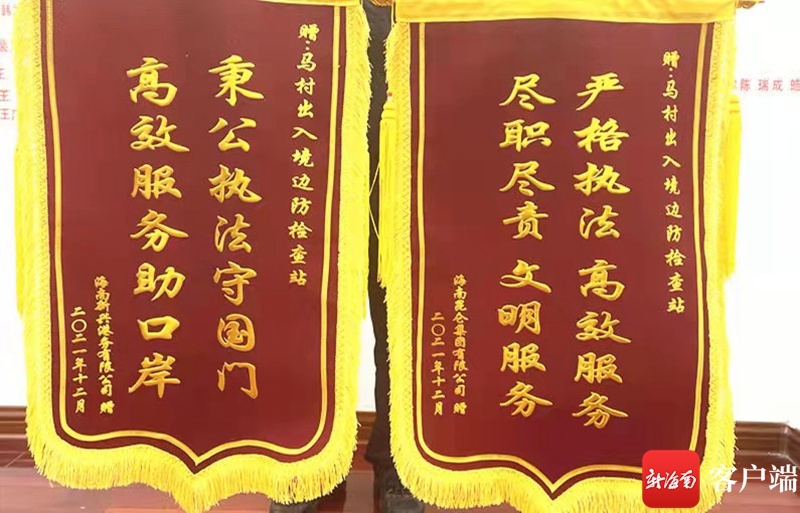 赠·马村出入境边防检查站
秉公执法守国门
高效服务助口岸
海南新兴港务有限公司 赠
二〇二一年十二月
赠·马村出入境边防检查站
严格执法 高效服务
尽职尽责 文明服务
海南昆仑集团有限公司 赠
二〇二一年十二月
陈 瑞成
新海南
客户端